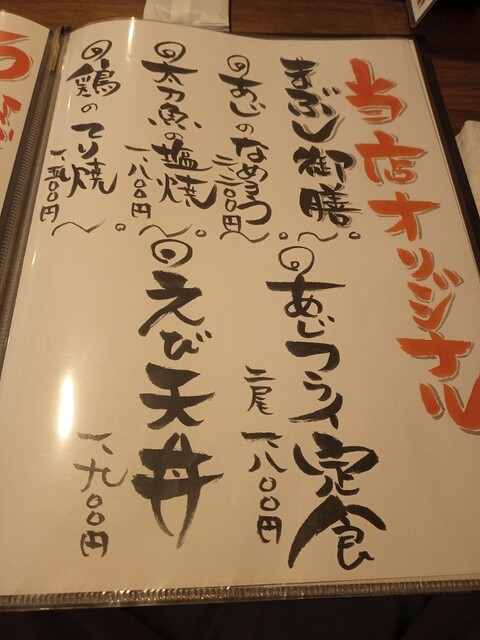 当店オリジナル
まぶし御膳
◎あじのなめろう
二、二〇〇円
◎太刀魚の塩焼
一、八〇〇円
◎鶏のてり焼
一、五〇〇円
◎あじフライ定食
二尾 一、八〇〇円
◎えび天丼
一、九〇〇円